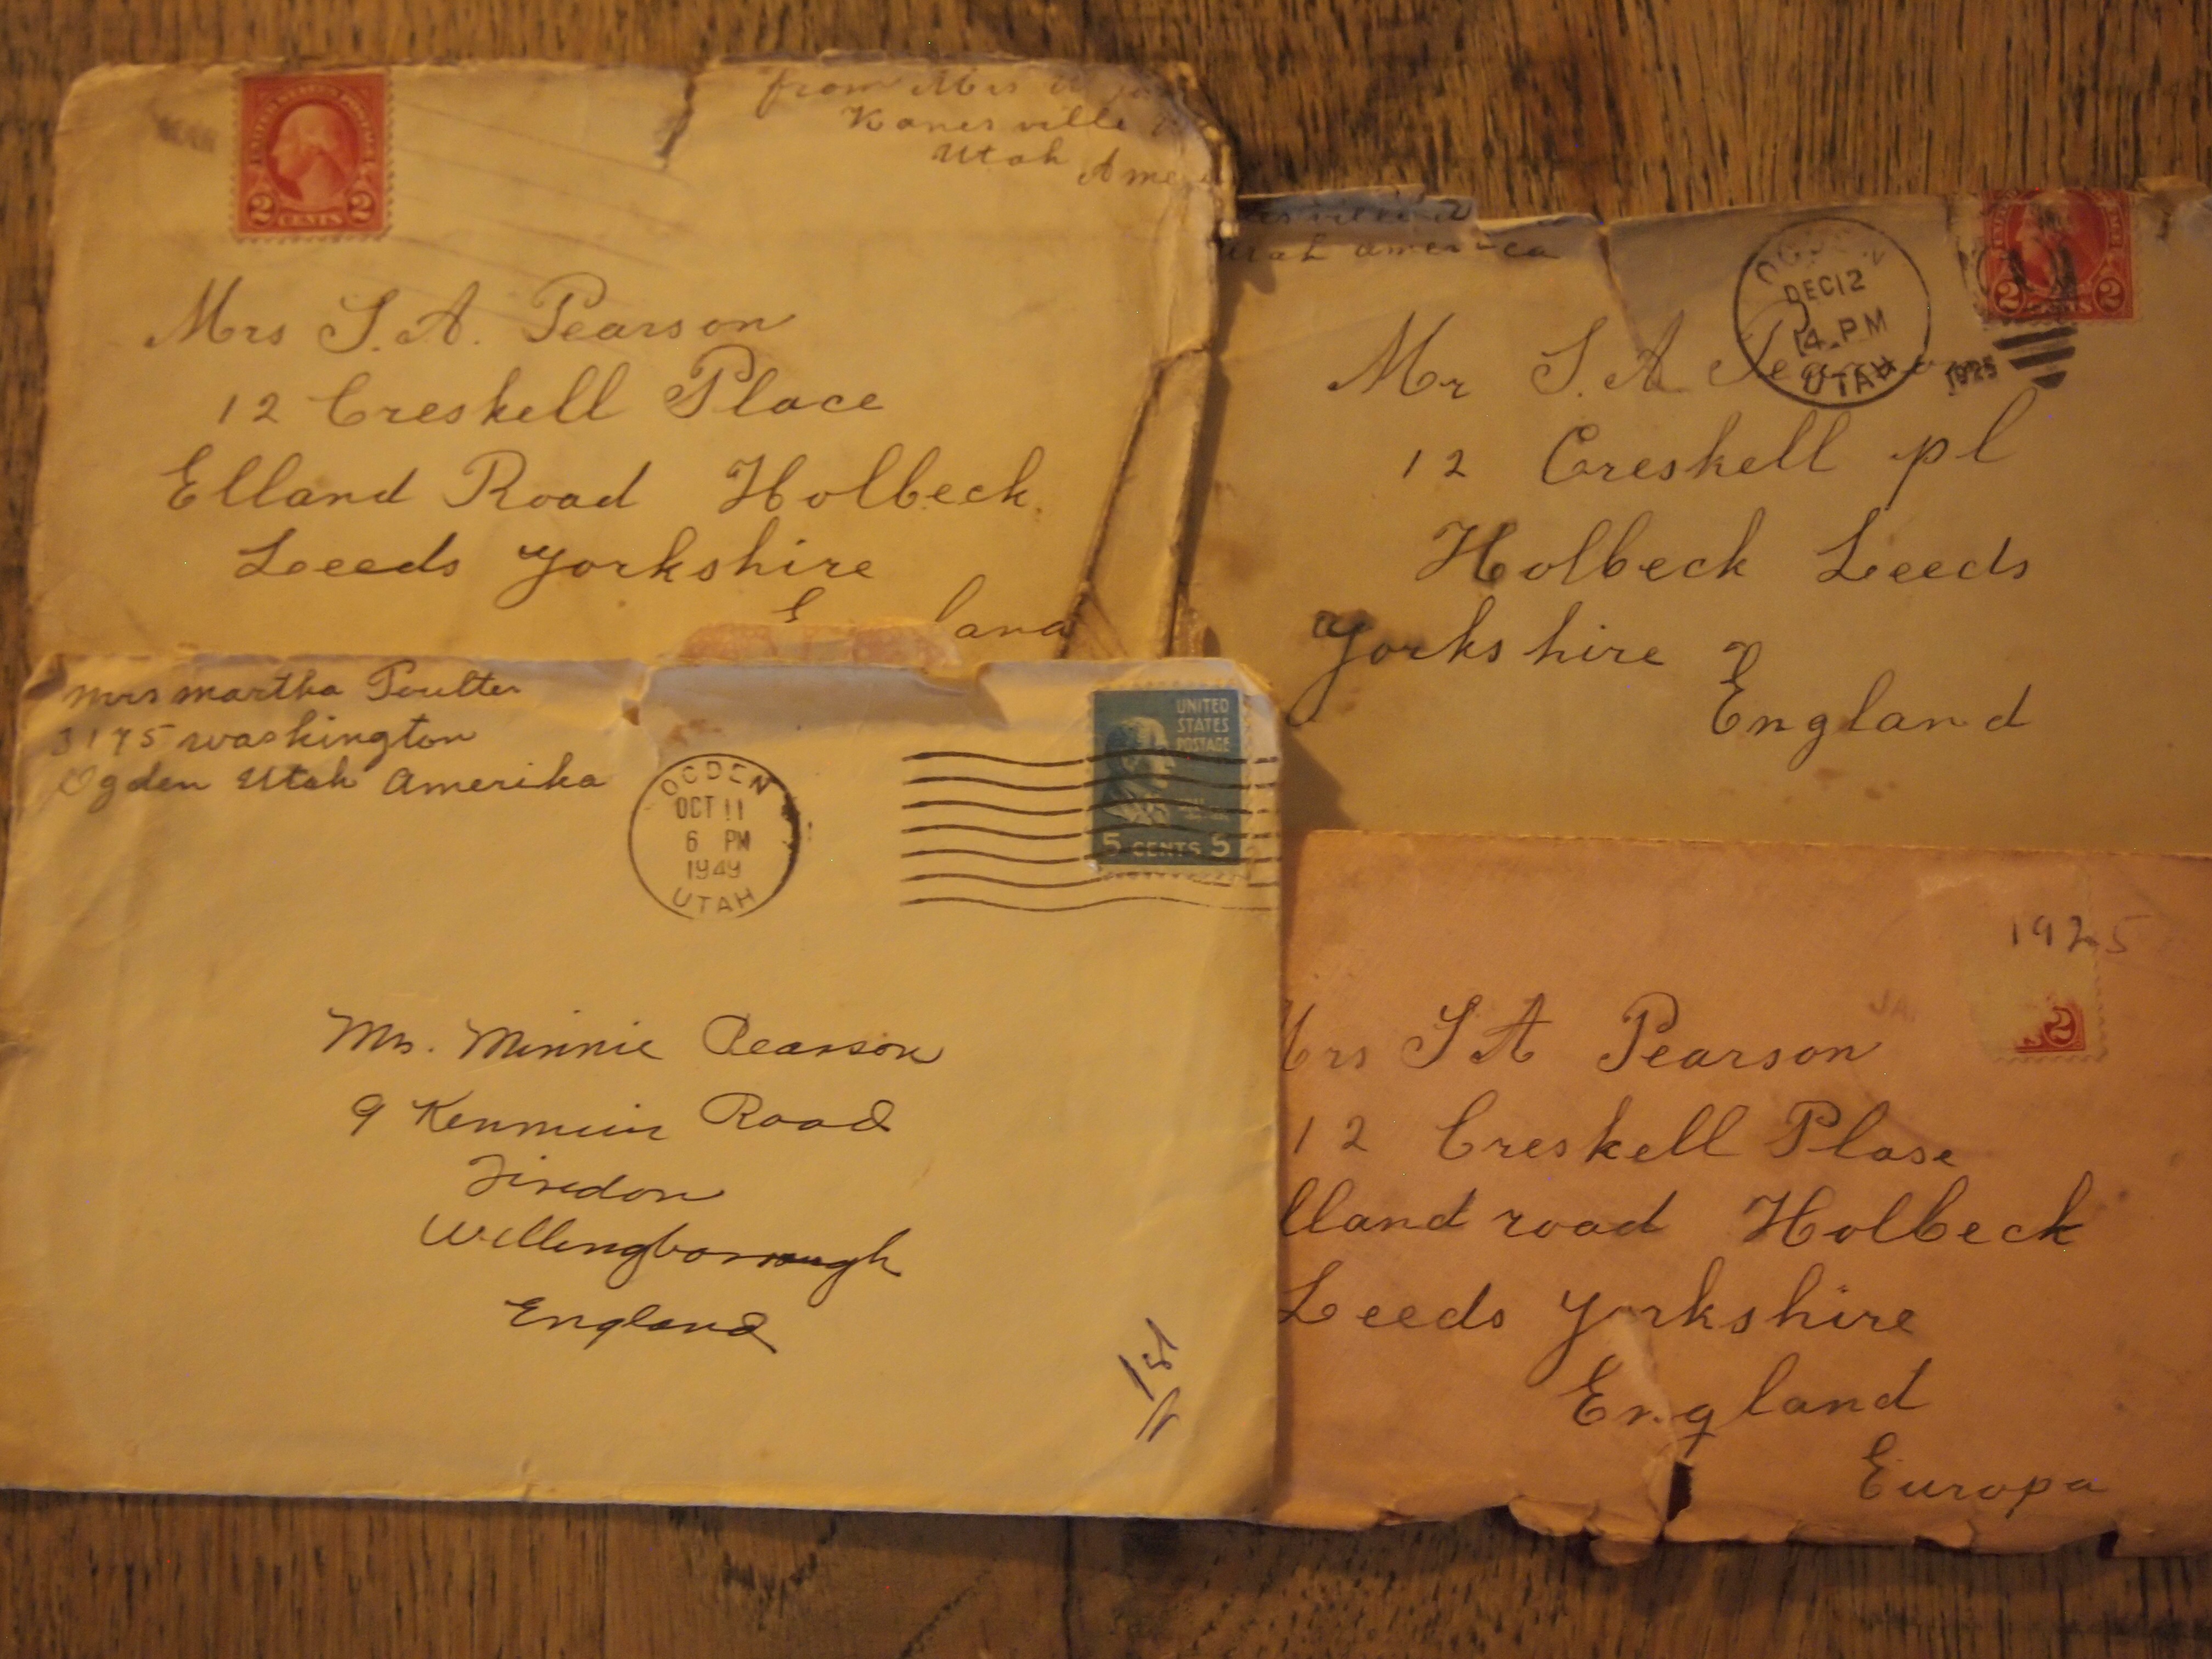 UNITED STATES POSTAGE
2 CENTS 2
from Mrs
Kanesville
Utah
Mrs S. A. Pearson
12 Creskell Place
Elland Road Holbeck
Leeds Yorkshire
america
OGDEN
DEC 12
4 PM
UTAH
1925
2 2
Mr S. A
12 Creskell pl
Holbeck Leeds
Yorkshire
England
mrs martha Poulter
3175 washington
Ogden Utah Amerika
OGDEN
OCT 11
6 PM
1949
UTAH
UNITED
STATES
POSTAGE
5 CENTS 5
Mrs. Minnie Pearson
9 Kenmuir Road
Finedon
Wellingborough
England
1st
1925
JA.
2
Mrs S A Pearson
12 Creskell Plase
lland road Holbeck
Leeds Yorkshire
England
Europa